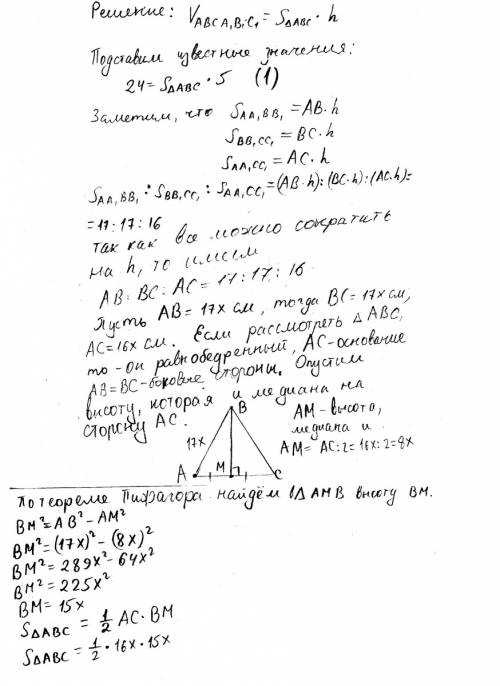 Решение: V ABCA₁B₁C₁ = S∆ABC · h
Подставим известные значения:
24 = S∆ABC · 5 (1)
Заметим, что S AA₁BB₁ = AB · h
S BB₁CC₁ = BC · h
S AA₁CC₁ = AC · h
S AA₁BB₁ : S BB₁CC₁ : S AA₁CC₁ = (AB·h):(BC·h):(AC·h)=
= 17:17:16
так как все можно сократить
на h, то имеем
AB : BC : AC = 17 : 17 : 16
Пусть AB = 17x см, тогда BC = 17x см,
AC = 16x см. Если рассмотреть ∆ ABC,
то - он равнобедренный, AC - основание
AB = BC - боковые стороны. Опустим
высоту, которая и медиана на
сторону AC.
B
17x
A
M
C
AM - высота,
медиана и
AM = AC:2 = 16x:2 = 8x
По теореме Пифагора найдём в ∆ AMB высоту BM.
BM² = AB² - AM²
BM² = (17x)² - (8x)²
BM² = 289x² - 64x²
BM² = 225x²
BM = 15x
S∆ABC = ½ AC · BM
S∆ABC = ½ · 16x · 15x